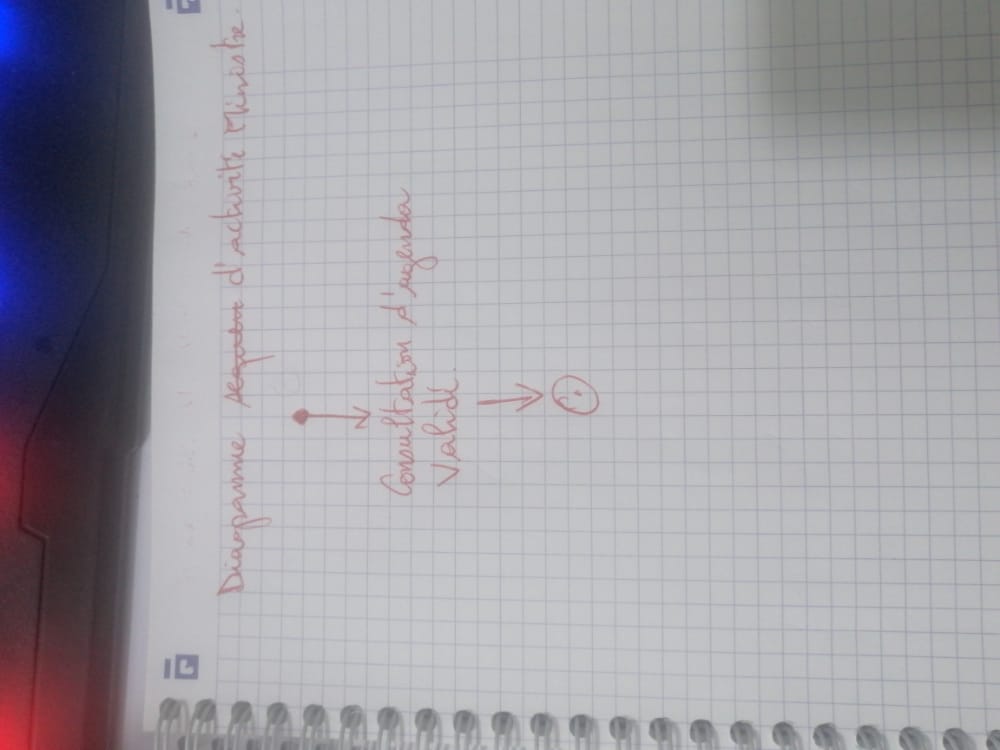 Diagramme sequence d'activité Ministre.
Consultation d'agenda
Validé.